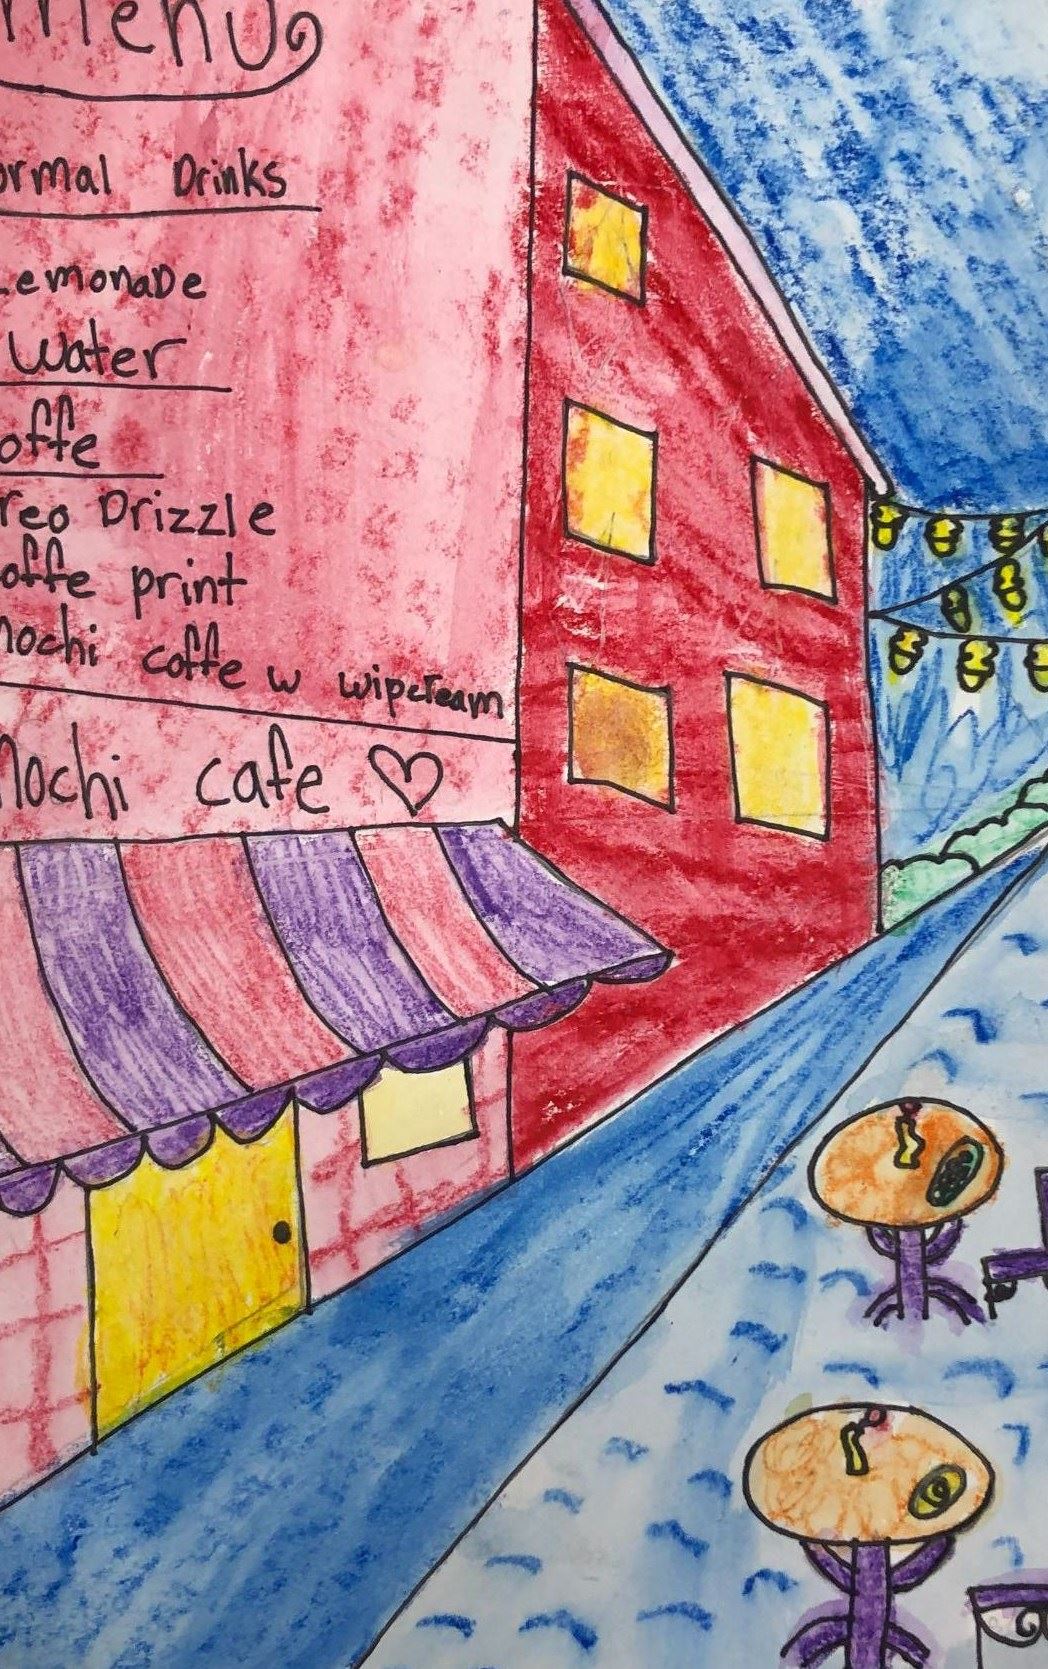 menu
ormal Drinks
Lemonade
Water
offe
reo Drizzle
offe print
mochi coffe w wipcream
mochi cafe